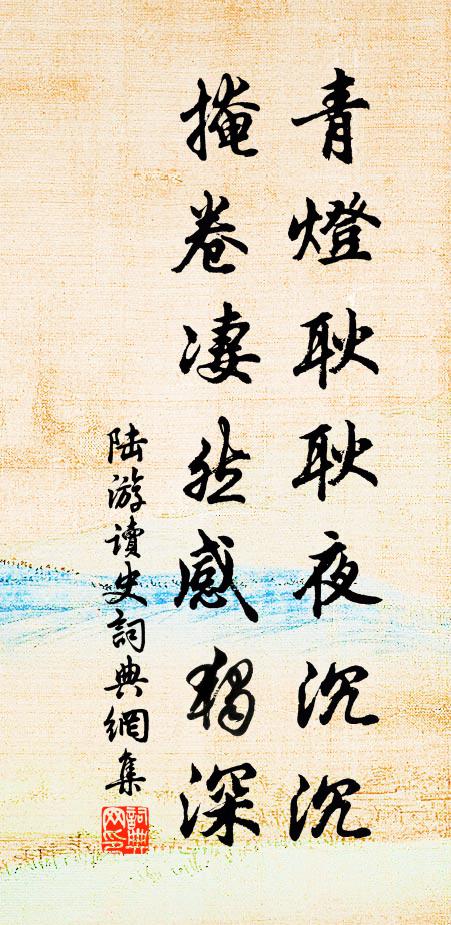 青燈耿耿夜沉沉
掩卷凄然感獨深
陆游讀史詞典網集
詞典网印